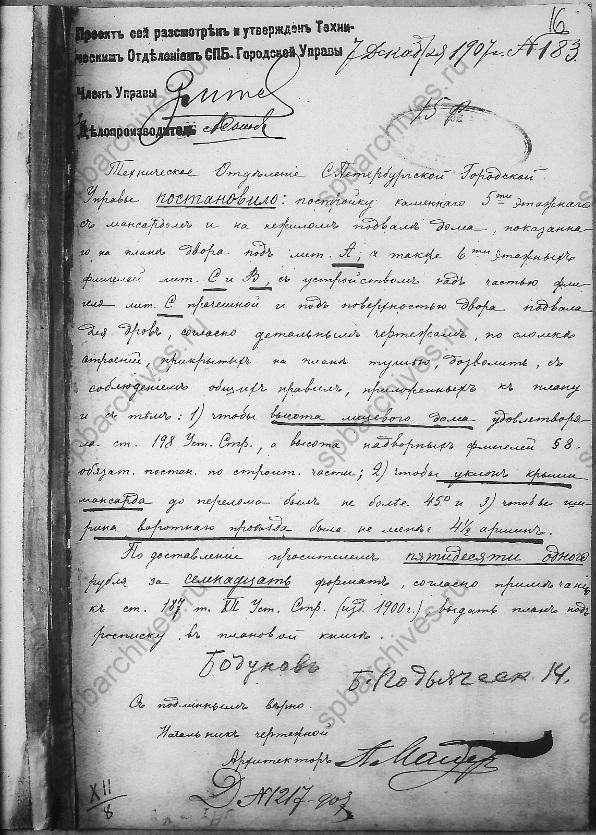 16
Проектъ сей разсмотрѣнъ и утвержденъ Техни-
ческимъ Отдѣленіемъ СПБ. Городской Управы
7 Декабря 1907 г. № 183
Членъ Управы
15 р
Дѣлопроизводитель
Техническое Отдѣленіе С.Петербургской Городской
Управы постановило: постройку каменнаго 5ти этажнаго
съ мансардомъ и на нежиломъ подвалѣ дома, показанна-
го на планѣ двора подъ лит. А, а также 6ти этажныхъ
флигелей лит. С и В, съ устройствомъ надъ частью фли-
геля лит. С прачешной и подъ поверхностью двора подвала
для дровъ, согласно детальнымъ чертежамъ, по сломкѣ
строеній, прикрытыхъ на планѣ тушью, дозволить, съ
соблюденіемъ общихъ правилъ, приложенныхъ къ плану
и съ тѣмъ: 1) чтобы высота лицевого дома удовлетворя-
ла ст. 198 Уст. Стр., а высота надворныхъ флигелей § 8.
обязат. постан. по строит. части; 2) чтобы уклонъ крыши
мансарда до перелома былъ не болѣе 45° и 3) чтобы ши-
рина воротнаго проѣзда была не менѣе 4½ аршинъ.
По доставленіе просителемъ пятидесяти одного
рубля за семнадцать форматъ, согласно примѣчанію
къ ст. 187 т. XII Уст. Стр. (изд. 1900 г.), выдать планъ подъ
росписку въ плановой книгѣ.
Бодуновъ
Б. Подьяческ 14.
Съ подлиннымъ вѣрно.
Начальникъ чертежной
Архитекторъ
XII
8
Д № 1217-907
spbarchives.ru